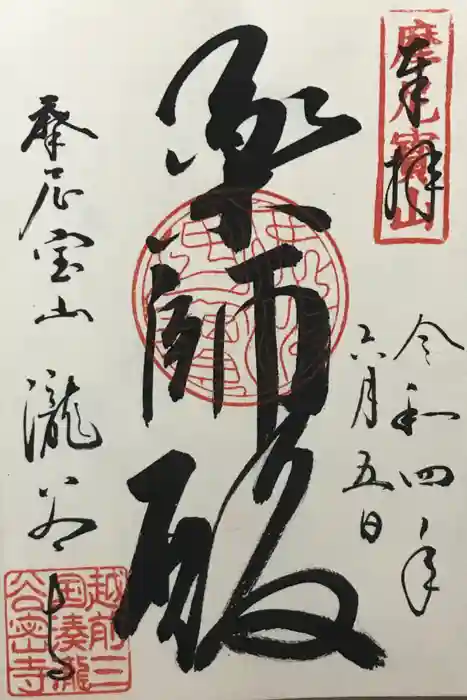 奉拝
摩尼寳山
令和四年
六月五日
薬師殿
摩尼宝山 瀧谷寺
越前三
国湊瀧
谷密寺